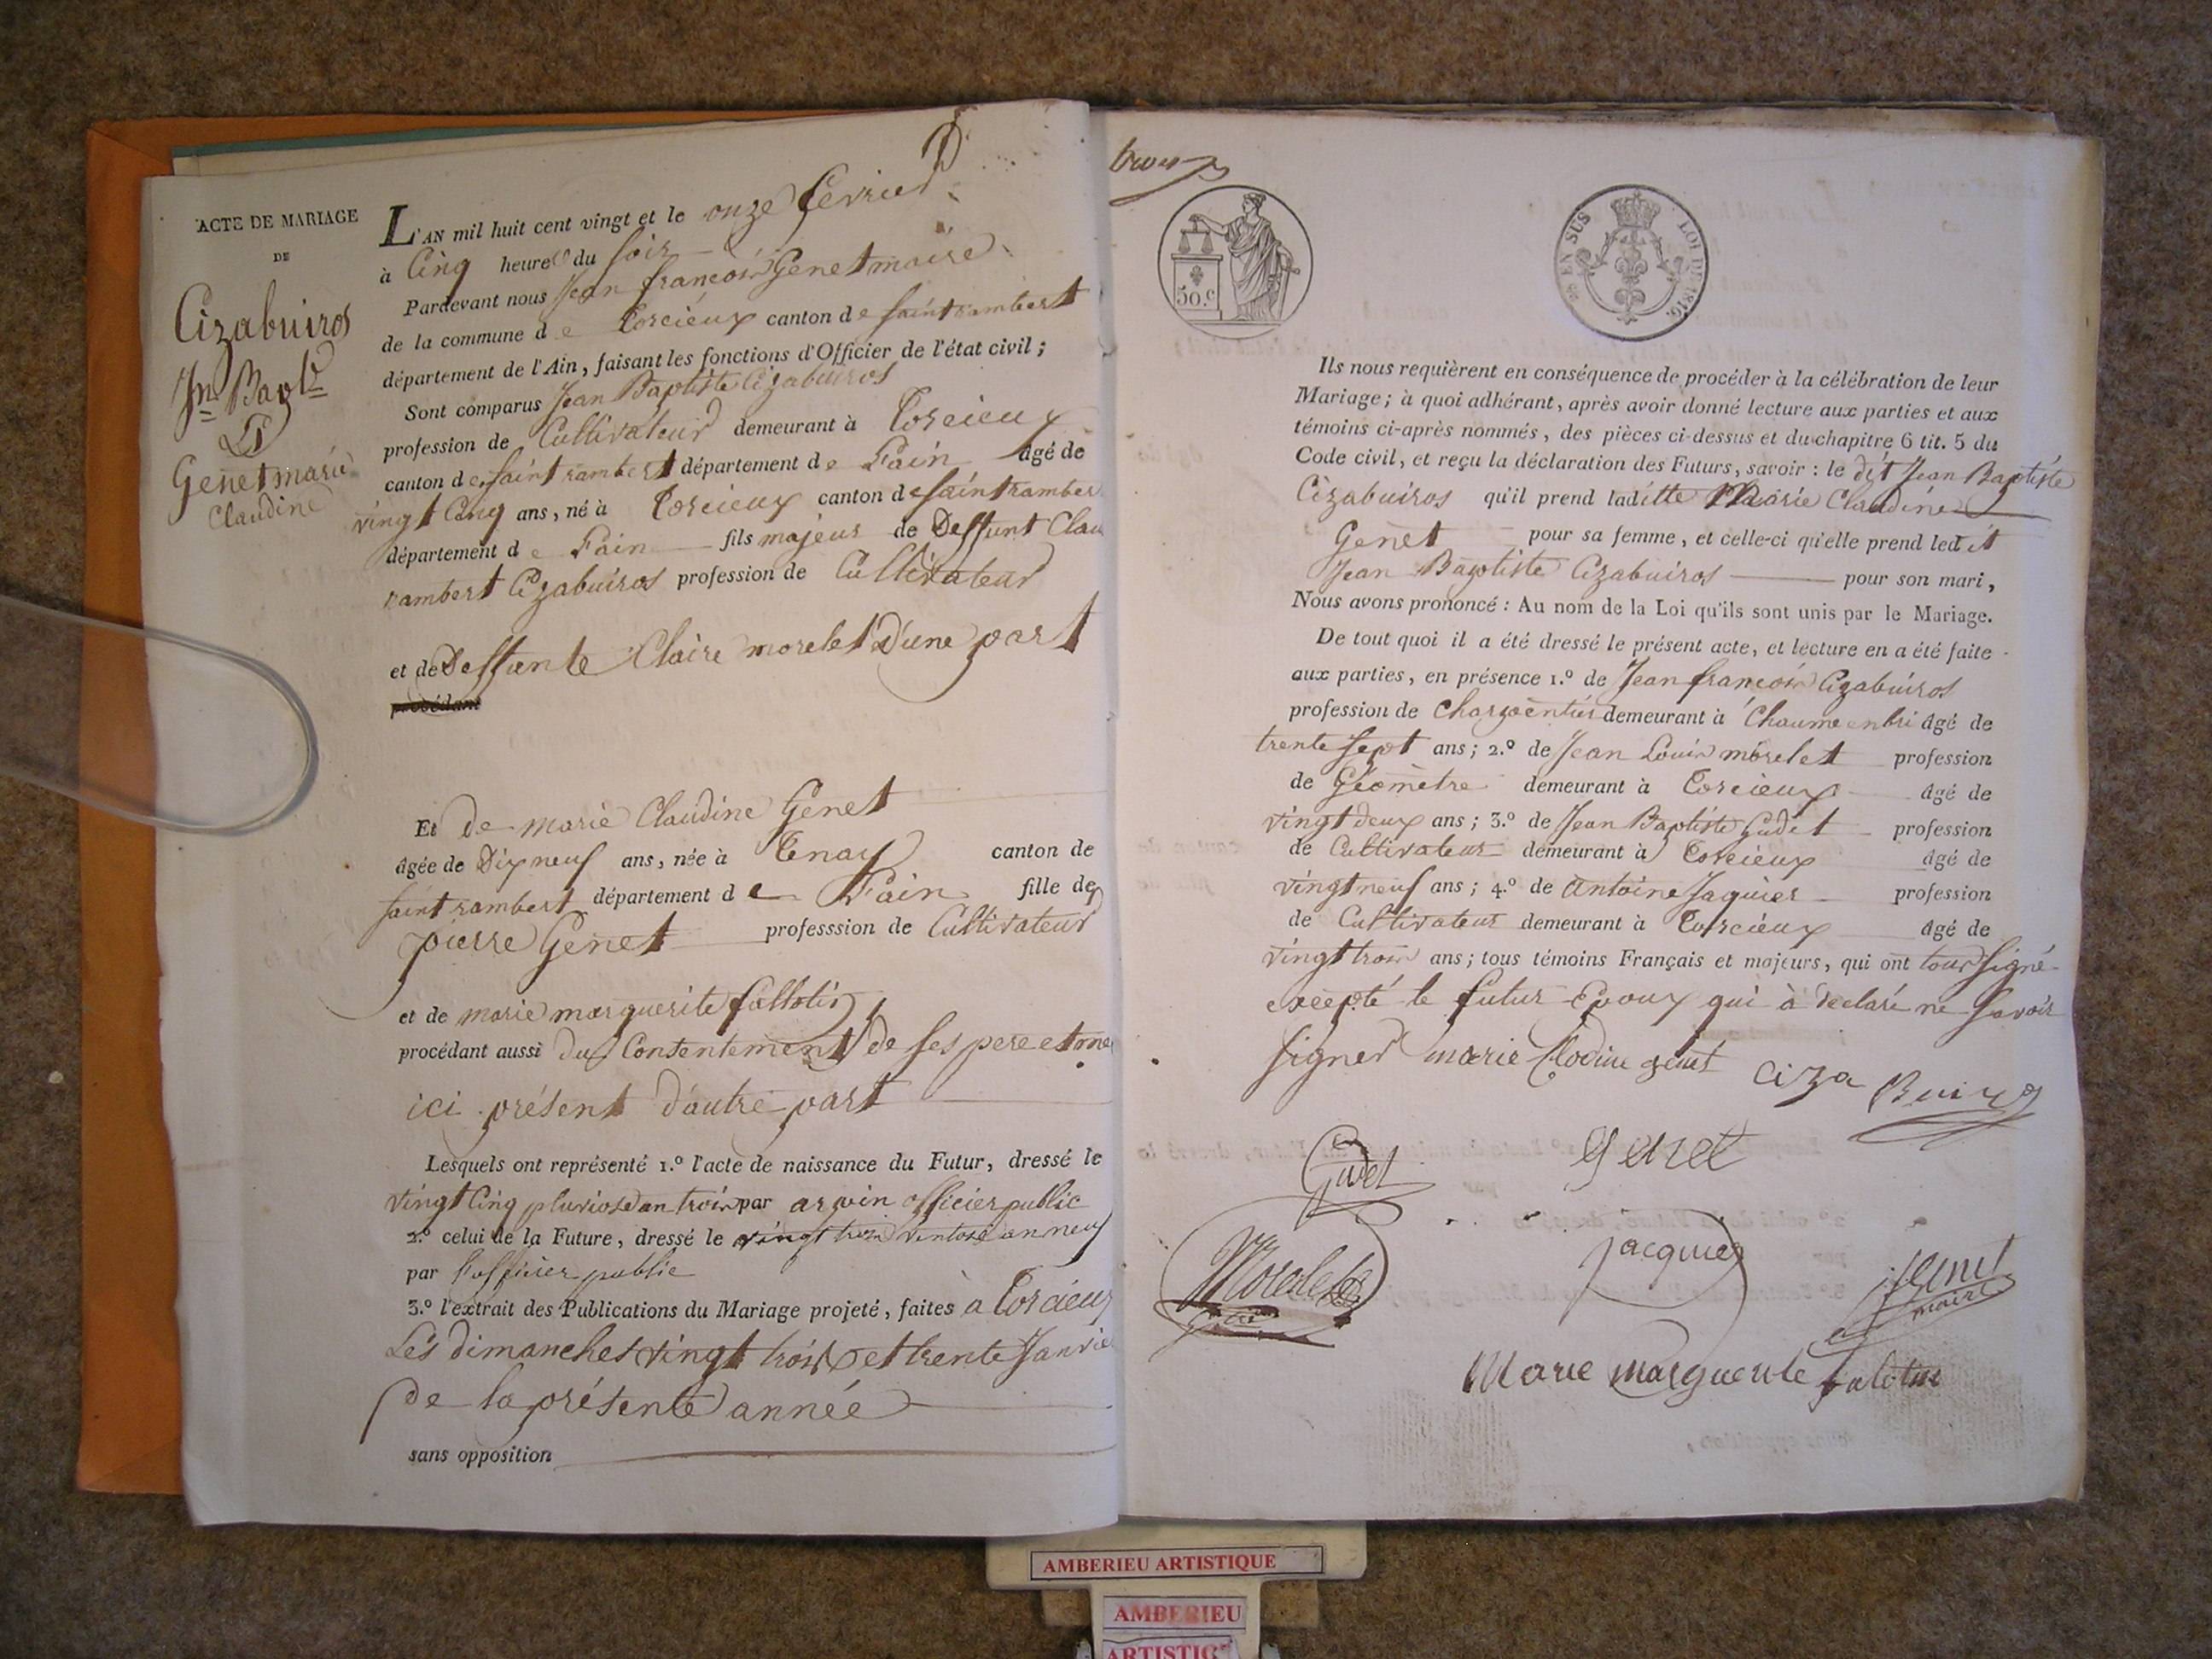 ACTE DE MARIAGE
DE
Cizabuiros
Jn Bapte
Et
Genet marie
Claudine
L'AN mil huit cent vingt et le onze fevrier
à Cinq heures du soir
Pardevant nous Jean françois Genet maire
de la commune de Torcieux canton de saint rambert
département de l'Ain, faisant les fonctions d'Officier de l'état civil ;
Sont comparus Jean Baptiste Cizabuiros
profession de Cultivateur demeurant à Torcieux
canton de saint rambert département de L'ain âgé de
vingt Cinq ans, né à Torcieux canton de saint rambert
département de L'ain fils majeur de Deffunt Clau
rambert Cizabuiros profession de Cultivateur
et de Deffunte Claire morelet D'une part
procédant
Et de marie Claudine Genet
âgée de Dix neuf ans, née à Tenay canton de
saint rambert département de L'ain fille de
pierre Genet professsion de Cultivateur
et de marie marguerite fallotin
procédant aussi du Consentement de ses pere et me
ici présent d'autre part
Lesquels ont représenté 1.º l'acte de naissance du Futur, dressé le
vingt Cinq pluviose an trois par arpin officier public
2.º celui de la Future, dressé le vingt trois ventose an neuf
par L'officier public
3.º l'extrait des Publications du Mariage projeté, faites à Torcieux
Les dimanches vingt trois et trente Janvie
de la présente année
sans opposition
trois
50.c
EN SUS
LOI DE 1816.
Ils nous requièrent en conséquence de procéder à la célébration de leur
Mariage ; à quoi adhérant, après avoir donné lecture aux parties et aux
témoins ci-après nommés, des pièces ci-dessus et du chapitre 6 tit. 5 du
Code civil, et reçu la déclaration des Futurs, savoir : le dit Jean Baptiste
Cizabuiros qu'il prend laditte Marie Claudine
Genet pour sa femme, et celle-ci qu'elle prend ledit
Jean Baptiste Cizabuiros pour son mari,
Nous avons prononcé : Au nom de la Loi qu'ils sont unis par le Mariage.
De tout quoi il a été dressé le présent acte, et lecture en a été faite
aux parties, en présence 1.º de Jean françois Cizabuiros
profession de Charpentier demeurant à Chaume enbri âgé de
trente sept ans ; 2.º de Jean Louis morelet profession
de Géomètre demeurant à Torcieux âgé de
vingt deux ans ; 3.º de Jean Baptiste Gudet profession
de Cultivateur demeurant à Torcieux âgé de
vingt neuf ans ; 4.º de Antoine Jaquier profession
de Cultivateur demeurant à Torcieux âgé de
vingt trois ans ; tous témoins Français et majeurs, qui ont tous signé
excepté le futur Epoux qui à déclaré ne savoir
signer marie Clodine genet Ciza Buiros
Gudet
Genet
Morelet
jacquier
Genet
maire
Marie marguerite falotin
AMBERIEU ARTISTIQUE
AMBERIEU
ARTISTIC